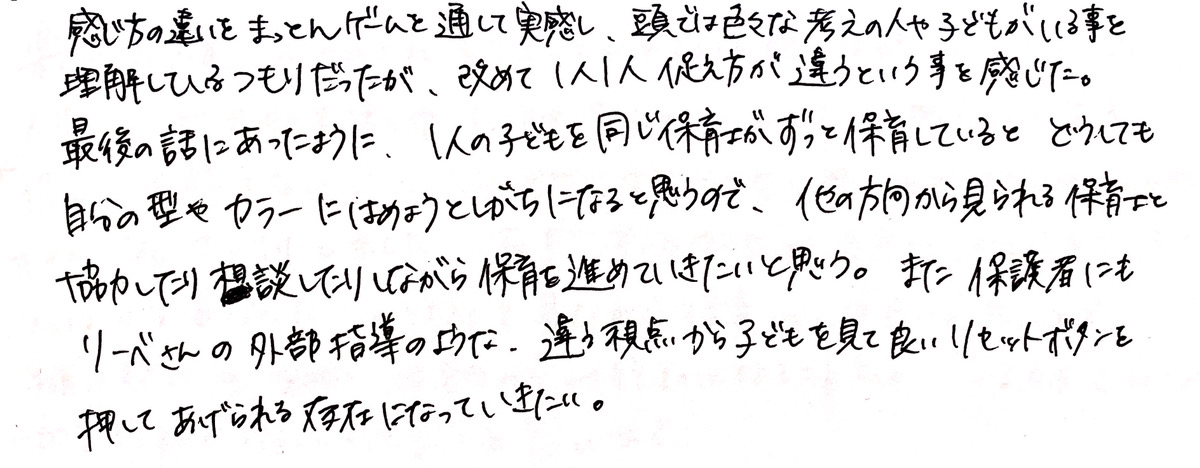 感じ方の違いをまっとんゲームを通して実感し、頭では色々な考えの人や子どもがいる事を
理解しているつもりだったが、改めて1人1人捉え方が違うという事を感じた。
最後の話にあったように、1人の子どもを同じ保育士がずっと保育していると どうしても
自分の型やカラーにはめようとしがちになると思うので、他の方向から見られる保育士と
協力したり相談したりしながら保育を進めていきたいと思う。また保護者にも
リーベさんの外部指導のような、違う視点から子どもを見て良いリセットボタンを
押してあげられる存在になっていきたい。